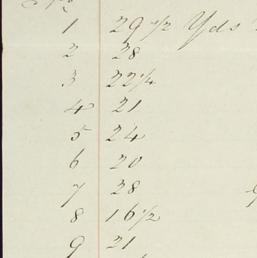 1 29 1/2 Yds
2 28
3 22 1/4
4 21
5 24
6 20
7 28
8 16 1/2
9 21